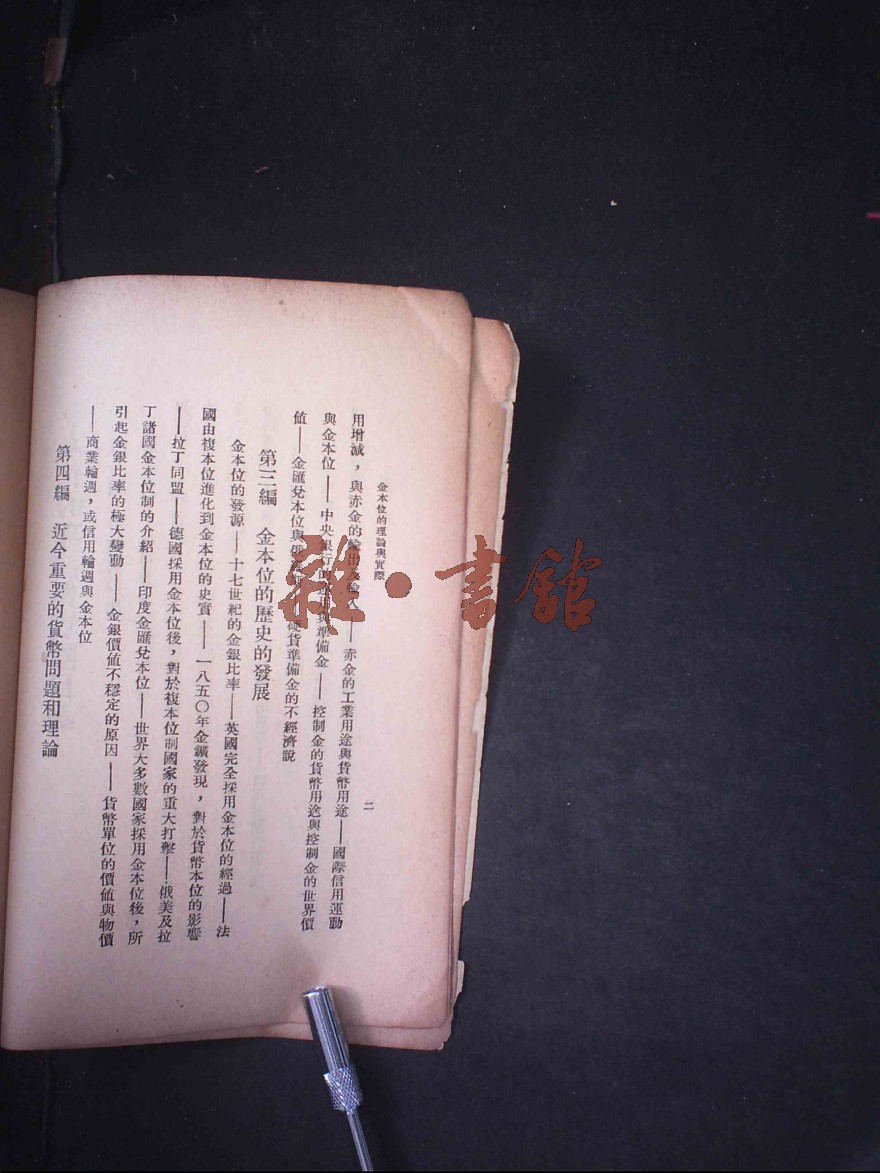 金本位的理論與實際
二
用增減，與赤金的輸出及輸入——赤金的工業用途與貨幣用途——國際信用運動
與金本位——中央銀行的準備金——控制金的貨幣用途與控制金的世界價
值——金匯兌本位與硬貨準備金的不經濟說
第三編　金本位的歷史的發展
金本位的發源——十七世紀的金銀比率——英國完全採用金本位的經過——法
國由複本位進化到金本位的史實——一八五〇年金鑛發現，對於貨幣本位的影響
——拉丁同盟——德國採用金本位後，對於複本位制國家的重大打擊——俄美及拉
丁諸國金本位制的介紹——印度金匯兌本位——世界大多數國家採用金本位後，所
引起金銀比率的極大變動——金銀價值不穩定的原因——貨幣單位的價值與物價
——商業輪週，或信用輪週與金本位
第四編　近今重要的貨幣問題和理論
雜·書館